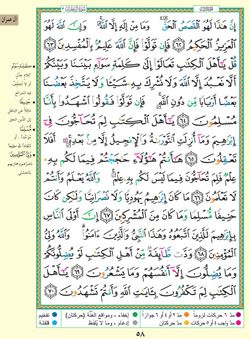 آل عمران
إِنَّ هَٰذَا لَهُوَ ٱلْقَصَصُ ٱلْحَقُّ وَمَا مِنْ إِلَٰهٍ إِلَّا ٱللَّهُ وَإِنَّ ٱللَّهَ لَهُوَ
ٱلْعَزِيزُ ٱلْحَكِيمُ ٦٢ فَإِن تَوَلَّوْا۟ فَإِنَّ ٱللَّهَ عَلِيمٌۢ بِٱلْمُفْسِدِينَ ٦٣
قُلْ يَٰٓأَهْلَ ٱلْكِتَٰبِ تَعَالَوْا۟ إِلَىٰ كَلِمَةٍ سَوَآءٍۭ بَيْنَنَا وَبَيْنَكُمْ
أَلَّا نَعْبُدَ إِلَّا ٱللَّهَ وَلَا نُشْرِكَ بِهِۦ شَيْـًٔا وَلَا يَتَّخِذَ بَعْضُنَا
بَعْضًا أَرْبَابًا مِّن دُونِ ٱللَّهِ فَإِن تَوَلَّوْا۟ فَقُولُوا۟ ٱشْهَدُوا۟ بِأَنَّا
مُسْلِمُونَ ٦٤ يَٰٓأَهْلَ ٱلْكِتَٰبِ لِمَ تُحَآجُّونَ فِىٓ
إِبْرَٰهِيمَ وَمَآ أُنزِلَتِ ٱلتَّوْرَىٰةُ وَٱلْإِنجِيلُ إِلَّا مِنۢ بَعْدِهِۦٓ أَفَلَا
تَعْقِلُونَ ٦٥ هَٰٓأَنتُمْ هَٰٓؤُلَآءِ حَٰجَجْتُمْ فِيمَا لَكُم بِهِۦ
عِلْمٌ فَلِمَ تُحَآجُّونَ فِيمَا لَيْسَ لَكُم بِهِۦ عِلْمٌ وَٱللَّهُ يَعْلَمُ وَأَنتُمْ
لَا تَعْلَمُونَ ٦٦ مَا كَانَ إِبْرَٰهِيمُ يَهُودِيًّا وَلَا نَصْرَانِيًّا وَلَٰكِن كَانَ
حَنِيفًا مُّسْلِمًا وَمَا كَانَ مِنَ ٱلْمُشْرِكِينَ ٦٧ إِنَّ أَوْلَى ٱلنَّاسِ
بِإِبْرَٰهِيمَ لَلَّذِينَ ٱتَّبَعُوهُ وَهَٰذَا ٱلنَّبِىُّ وَٱلَّذِينَ ءَامَنُوا۟ وَٱللَّهُ وَلِىُّ
ٱلْمُؤْمِنِينَ ٦٨ وَدَّت طَّآئِفَةٌ مِّنْ أَهْلِ ٱلْكِتَٰبِ لَوْ يُضِلُّونَكُمْ
وَمَا يُضِلُّونَ إِلَّآ أَنفُسَهُمْ وَمَا يَشْعُرُونَ ٦٩ يَٰٓأَهْلَ
ٱلْكِتَٰبِ لِمَ تَكْفُرُونَ بِـَٔايَٰتِ ٱللَّهِ وَأَنتُمْ تَشْهَدُونَ ٧٠
٥٨